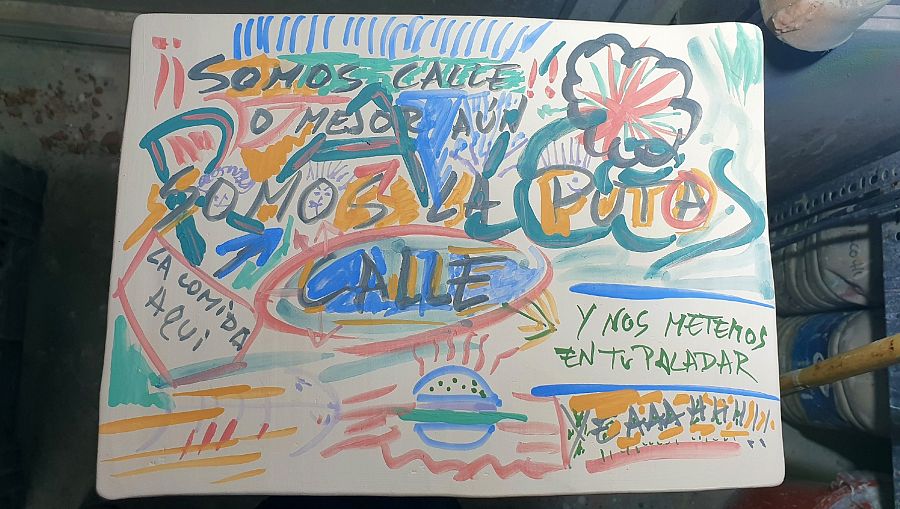 ¡¡SOMOS CALLE!!
O MEJOR AÚN
SOMOS LA PUTA
CALLE
LA COMIDA
AQUÍ
Y NOS METEMOS
EN TU PALADAR
YEAAAHHH!!!